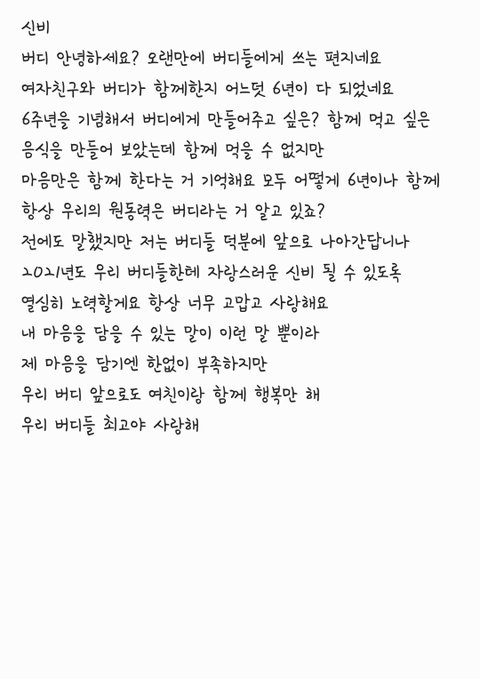 신비
버디 안녕하세요? 오랜만에 버디들에게 쓰는 편지네요
여자친구와 버디가 함께한지 어느덧 6년이 다 되었네요
6주년을 기념해서 버디에게 만들어주고 싶은? 함께 먹고 싶은
음식을 만들어 보았는데 함께 먹을 수 없지만
마음만은 함께 한다는 거 기억해요 모두 어떻게 6년이나 함께
항상 우리의 원동력은 버디라는 거 알고 있죠?
전에도 말했지만 저는 버디들 덕분에 앞으로 나아간답니나
2021년도 우리 버디들한테 자랑스러운 신비 될 수 있도록
열심히 노력할게요 항상 너무 고맙고 사랑해요
내 마음을 담을 수 있는 말이 이런 말 뿐이라
제 마음을 담기엔 한없이 부족하지만
우리 버디 앞으로도 여친이랑 함께 행복만 해
우리 버디들 최고야 사랑해